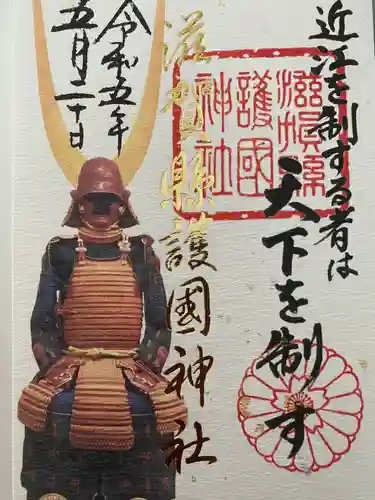 近江を制する者は
天下を制す
滋賀縣護國神社
滋賀縣
護國
神社
令和五年
五月二十日